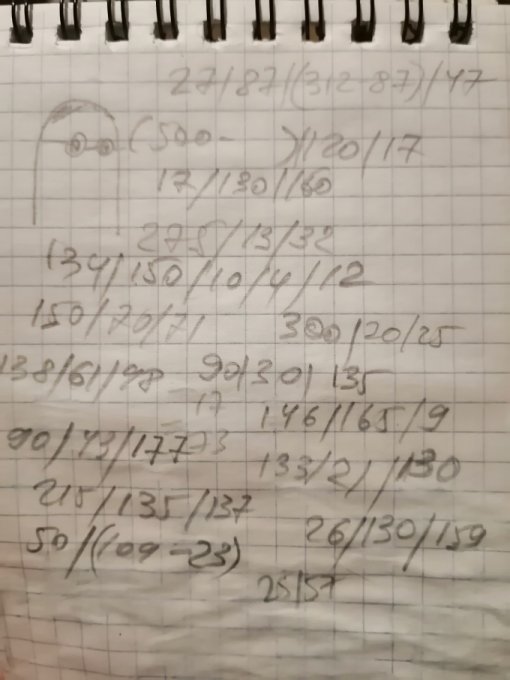 27/87/(312-87)/47
(500-    )/120/17
17/130/160
275/13/32
134/150/10/4/12
150/70/71
300/20/25
138/61/98
90/30/135
17
146/165/9
90/43/177
73
133/21/130
215/135/137
26/130/159
50/(109-23)
25/57